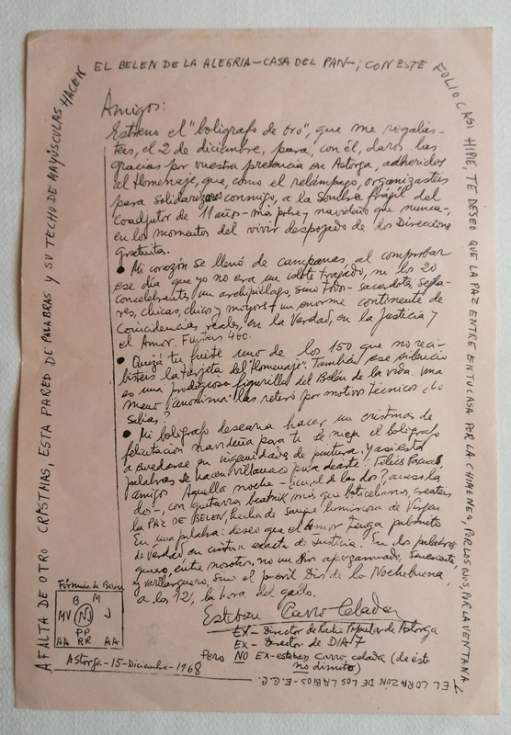 EL BELEN DE LA ALEGRIA - CASA DEL PAN -; CON ESTE
FOLIO CASI HIPIE, TE DESEO QUE LA PAZ ENTRE EN TU CASA POR LA CHIMENEA, POR LOS POR LA VENTANA Y
EL CORAZÓN DE LOS LABIOS - E.C.C.
A FALTA DE OTRO CRISTMAS, ESTA PARED DE PALABRAS Y SU TECHO DE MAYÚSCULAS HACEN
Amigos:
Estreno el "bolígrafo de oro", que me regalás-
teis, el 2 de diciembre, para, con él, daros las
gracias por vuestra presencia en Astorga, adheridos
al Homenaje, que, como el relámpago, organizasteis
para solidarizaros conmigo, a la sombra frágil del
Coadjutor de 11 años - más pobre y navideño que nunca -,
en los momentos del vivir despojado de las Direcciones
gratuitas.
• Mi corazón se llenó de campanas, al comprobar
ese día que yo no era un islote trapado, ni los 20
concelebrantes un archipiélago, sino todos - sacerdotes, segla-
res, chicas, chicos y mayores + un enorme continente de
Coincidencias reales, en la Verdad, en la Justicia y
el Amor. Fuisteis 400.
• Quizá tu fuiste uno de los 150 que no reci-
bisteis la tarjeta del "Homenaje". También ese silencio
es una prodigiosa figurilla del Belén de la vida. Una
mano "anónima" las retiró por motivos técnicos ¿Lo
sabías?
• Mi bolígrafo desearía hacer un cristmas de
felicitación navideña para ti. Se niega el bolígrafo
a quedarse en ingenuidades de pintura. Y así esta
palabras se hacen villancico para desearte: Felices Pascuas,
amigo. Aquella noche
la PAZ DE BELEN, hecha de sangre luminosa de Virgen
En una palabra: deseo que el amor tenga
de verdad en cintura exacta de Justicia. En dos palabras:
quiero, entre nosotros, no un Dios apergaminado,
y sino el Dios de la Nochebuena,
a las 12, la hora del gallo.
Esteban Carro Celada
Ex - Director de Radio Popular de Astorga
Ex - Director de DIA 7
Pero NO Ex-esteban carro celada (de éste
no dimito)
Fórmula de Belén
B M
MV N J
PP
AA RR AA
Astorga - 15 - Diciembre - 1968